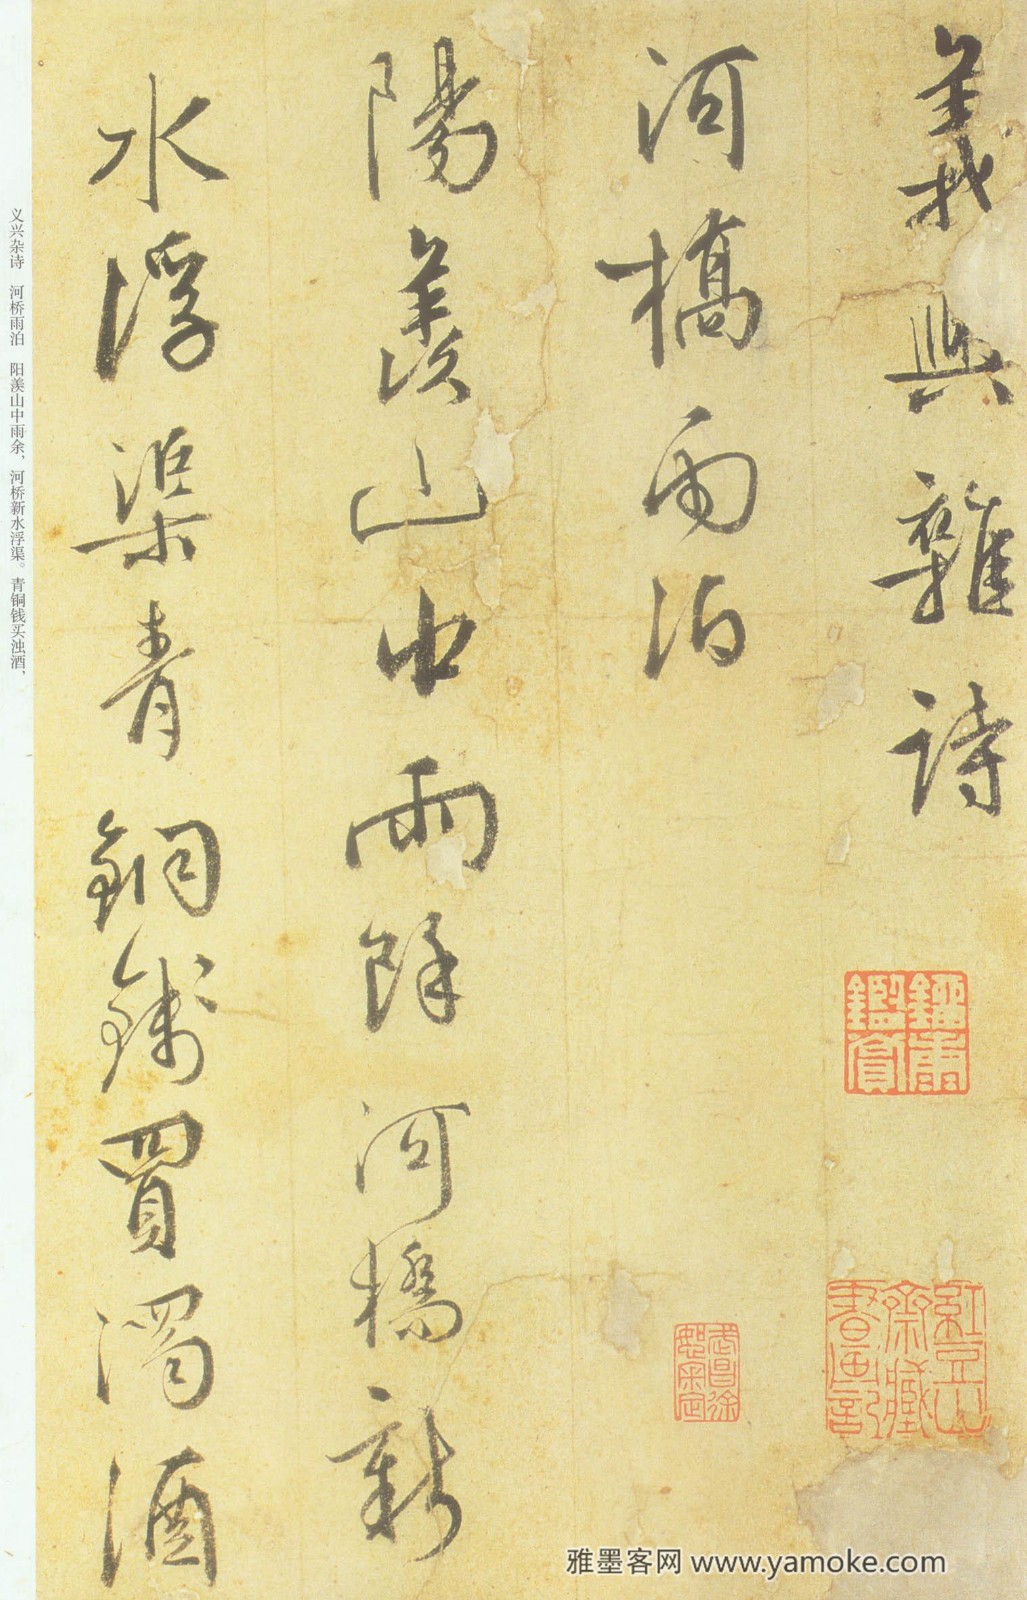 義興雜詩
河橋雨泊
陽羨山中雨餘河橋新
水浮渠青銅錢買濁酒
义兴杂诗 河桥雨泊 阳羡山中雨余，河桥新水浮渠。青铜钱买浊酒，
紅豆山
齋臧
書画記
武昌徐
恕審定
雅墨客网 www.yamoke.com